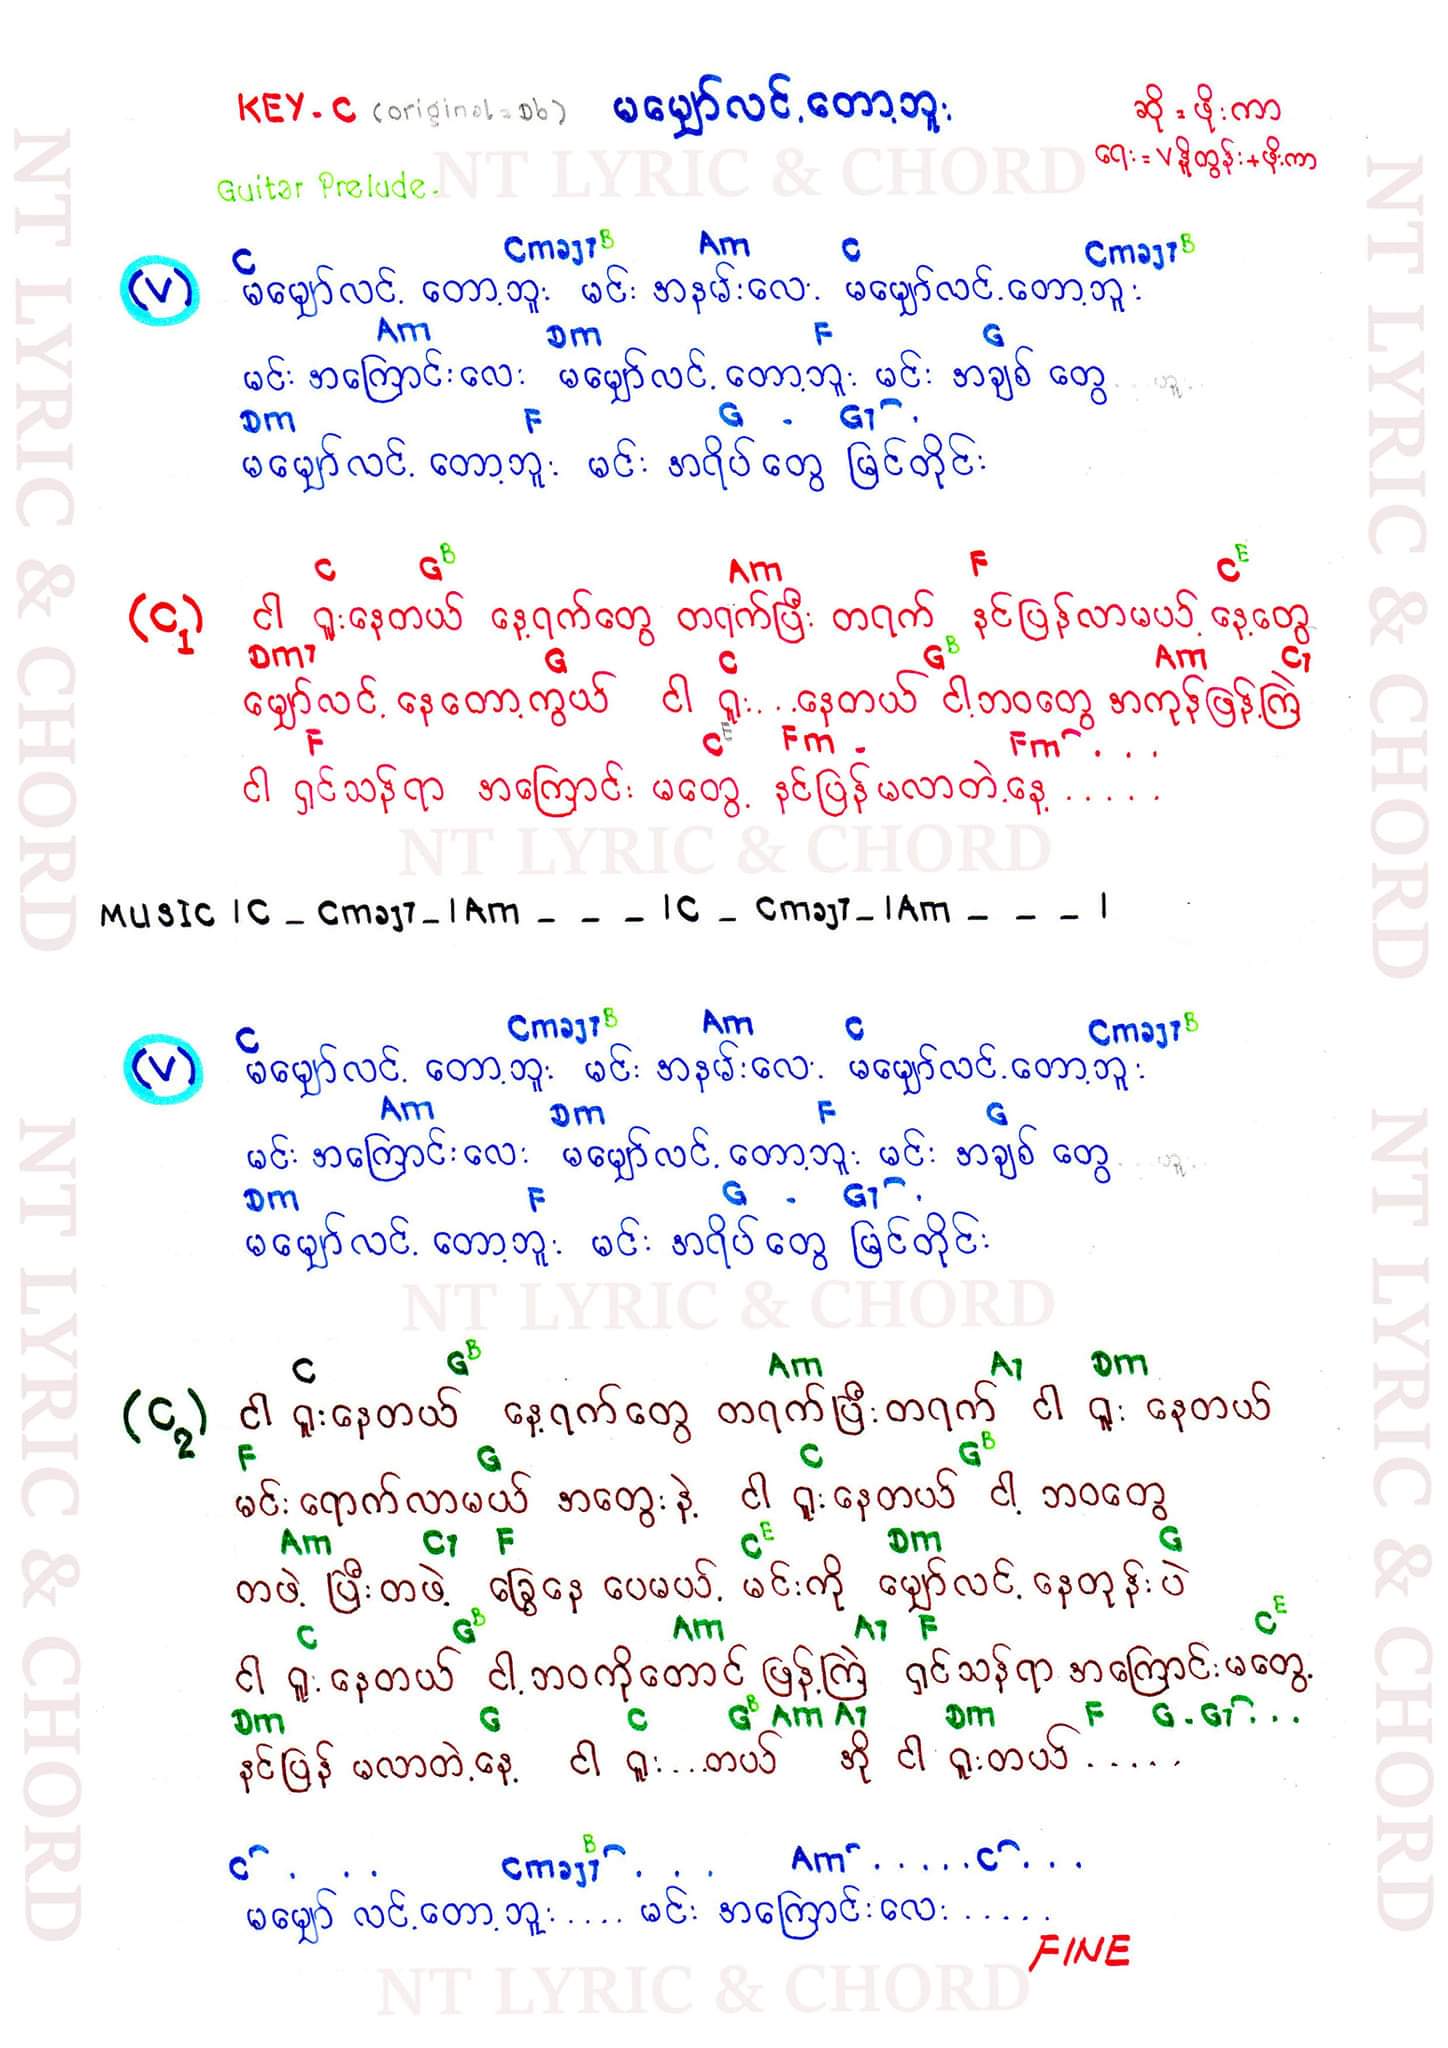 KEY - C (original = Db) မမျှော်လင့်တော့ဘူး ဆို = ဖိုးကာ
ရေး = V နို့တွန်း + ဖိုးကာ
Guitar Prelude.
C Cmaj7 B Am C Cmaj7 B
(V) မမျှော်လင့် တော့ဘူး မင်း အနမ်းလေး မမျှော်လင့်တော့ဘူး
Am Dm F G
မင်း အကြောင်းလေး မမျှော်လင့် တော့ဘူး မင်း အချစ် တွေ ... ဟူ...
Dm F G . G7 .
မမျှော်လင့် တော့ဘူး မင်း အရိပ်တွေ မြင်တိုင်း
C G B Am F C E
(C1) ငါ ရူးနေတယ် နေ့ရက်တွေ တရက်ပြီး တရက် နင်ပြန်လာမယ့် နေ့တွေ
Dm7 G C G B Am C7
မျှော်လင့် နေတော့ကွယ် ငါ ရူး...နေတယ် ငါ့ဘဝတွေ အကုန်ဖြန့်ကြဲ
F C E Fm . Fm . . .
ငါ ရှင်သန်ရာ အကြောင်း မတွေ့ နင်ပြန်မလာတဲ့နေ့ .....
NT LYRIC & CHORD
MUSIC | C _ Cmaj7 _ | Am _ _ _ | C _ Cmaj7 _ | Am _ _ _ |
C Cmaj7 B Am C Cmaj7 B
(V) မမျှော်လင့် တော့ဘူး မင်း အနမ်းလေး မမျှော်လင့်တော့ဘူး
Am Dm F G
မင်း အကြောင်းလေး မမျှော်လင့် တော့ဘူး မင်း အချစ် တွေ ... ဟူ...
Dm F G . G7 .
မမျှော်လင့် တော့ဘူး မင်း အရိပ်တွေ မြင်တိုင်း
NT LYRIC & CHORD
C G B Am A7 Dm
(C2) ငါ ရူးနေတယ် နေ့ရက်တွေ တရက်ပြီးတရက် ငါ ရူး နေတယ်
F G C G B
မင်းရောက်လာမယ် အတွေးနဲ့ ငါ ရူးနေတယ် ငါ့ ဘဝတွေ
Am C7 F C E Dm G
တဖဲ့ ပြီးတဖဲ့ ခြွေနေ ပေမယ့် မင်းကို မျှော်လင့် နေတုန်းပဲ
C G B Am A7 F C E
ငါ ရူးနေတယ် ငါ့ဘဝကိုတောင် ဖြန့်ကြဲ ရှင်သန်ရာ အကြောင်းမတွေ့
Dm G C G B Am A7 Dm F G . G7 ...
နင်ပြန် မလာတဲ့နေ့ ငါ ရူး...တယ် အို ငါ ရူးတယ် .....
C . . . Cmaj7 B . . . Am ..... C ...
မမျှော် လင့်တော့ဘူး .... မင်း အကြောင်းလေး .....
FINE
NT LYRIC & CHORD